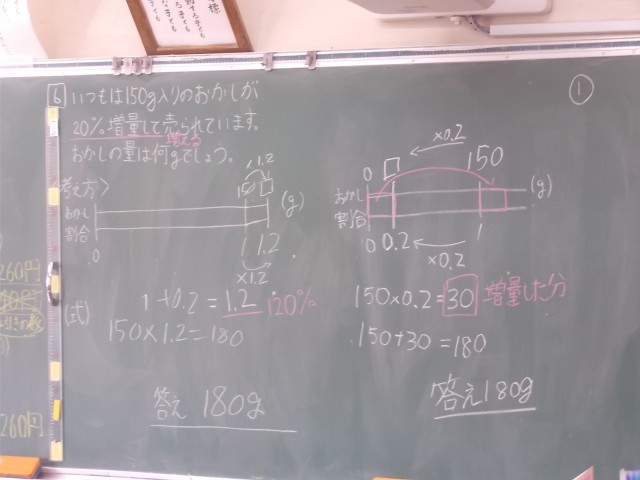 6 いつもは150g入りのおかしが
20%増量して売られています。
増える
おかしの量は何gでしょう。
考え方>
×1.2
150 □
(g)
おかし
割合
0 1 1.2
×1.2
(式) 1+0.2=1.2 120%
150×1.2=180
答え 180g
①
×0.2
0 □ 150
(g)
おかし
割合
0 0.2 1
×0.2
150×0.2=30 増量した分
150+30=180
答え180g
260円
260円